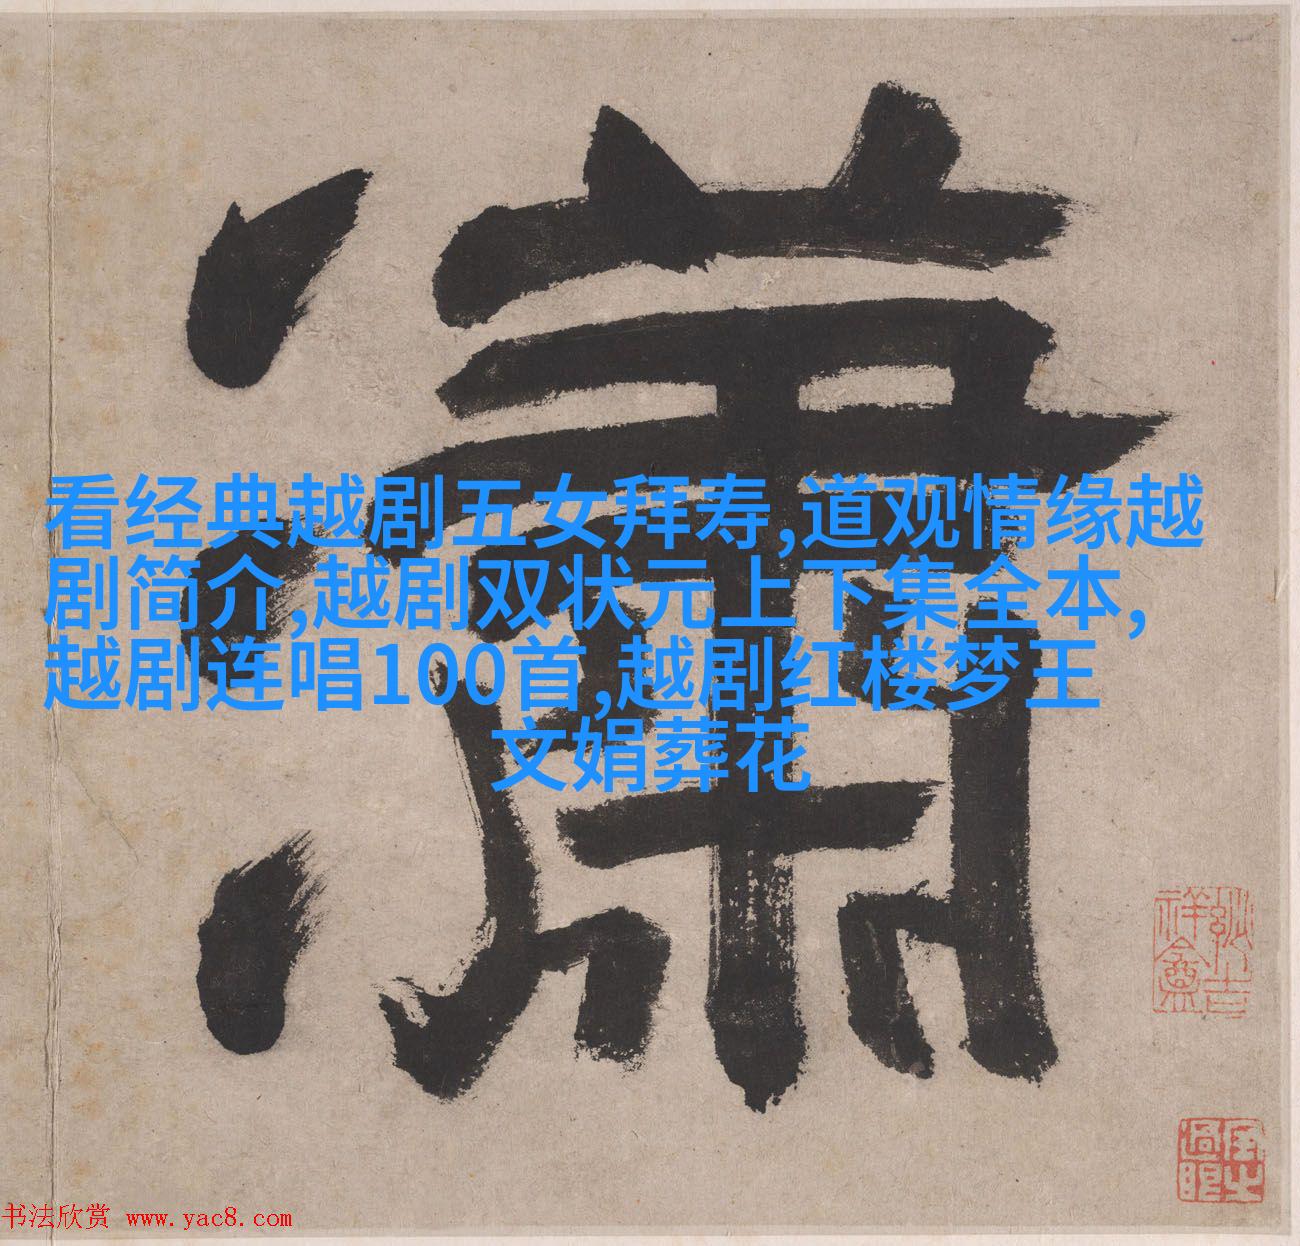 瀟
看经典越剧五女拜寿,道观情缘越
剧简介,越剧双状元上下集全本,
越剧连唱100首,越剧红楼梦王
文娟葬花
书法欣赏 www.yac8.com